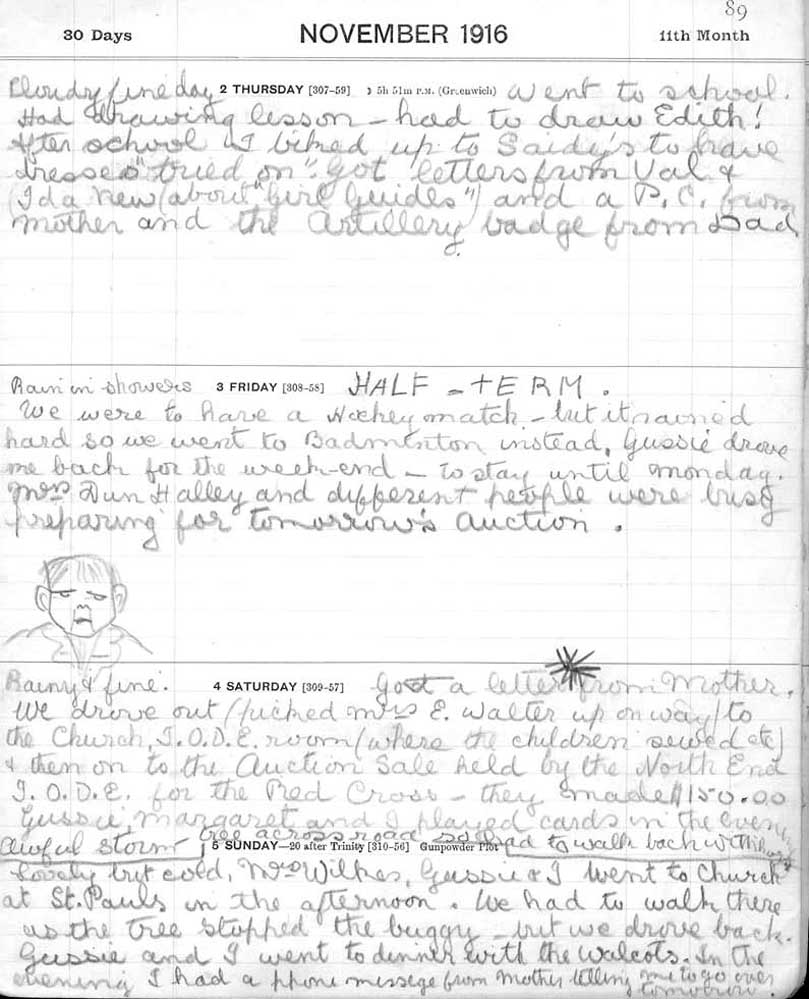 89
30 Days NOVEMBER 1916 11th Month
Cloudy fine day 2 THURSDAY [307-59] ☽ 5h 51m P.M. (Greenwich) Went to school.
Had drawing lesson – had to draw Edith!
After school I biked up to Saidy's to have
dresses "tried on". Got letters from Val &
Ida New (about "Girl Guides") and a P.C. from
mother and the Artillery badge from Dad
Rain in showers 3 FRIDAY [308-58] HALF – TERM.
We were to have a Hockey match – but it rained
hard so we went to Badminton instead, Gussie drove
me back for the week-end – to stay until monday.
Mrs Dun Halley and different people were busy
preparing for tomorrow's auction.
Rainy & fine. 4 SATURDAY [309-57] Got a letter from Mother.
We drove out (picked Mrs E. Walter up on way) to
the Church, I.O.D.E. room (where the children sewed etc)
& then on to the Auction Sale held by the North End
I.O.D.E. for the Red Cross – they made $150.00
Gussie, Margaret and I played cards in the
Awful storm tree across road so had to walk back with
5 SUNDAY—20 after Trinity [310-56] Gunpowder Plot
Lovely but cold, Mrs Wilkes, Gussie & I went to Church
at St. Pauls in the afternoon. We had to walk there
as the tree stopped the buggy – but we drove back.
Gussie and I went to dinner with the Walcots. In the
evening I had a phone messege from Mother telling me to go over
tomorrow.